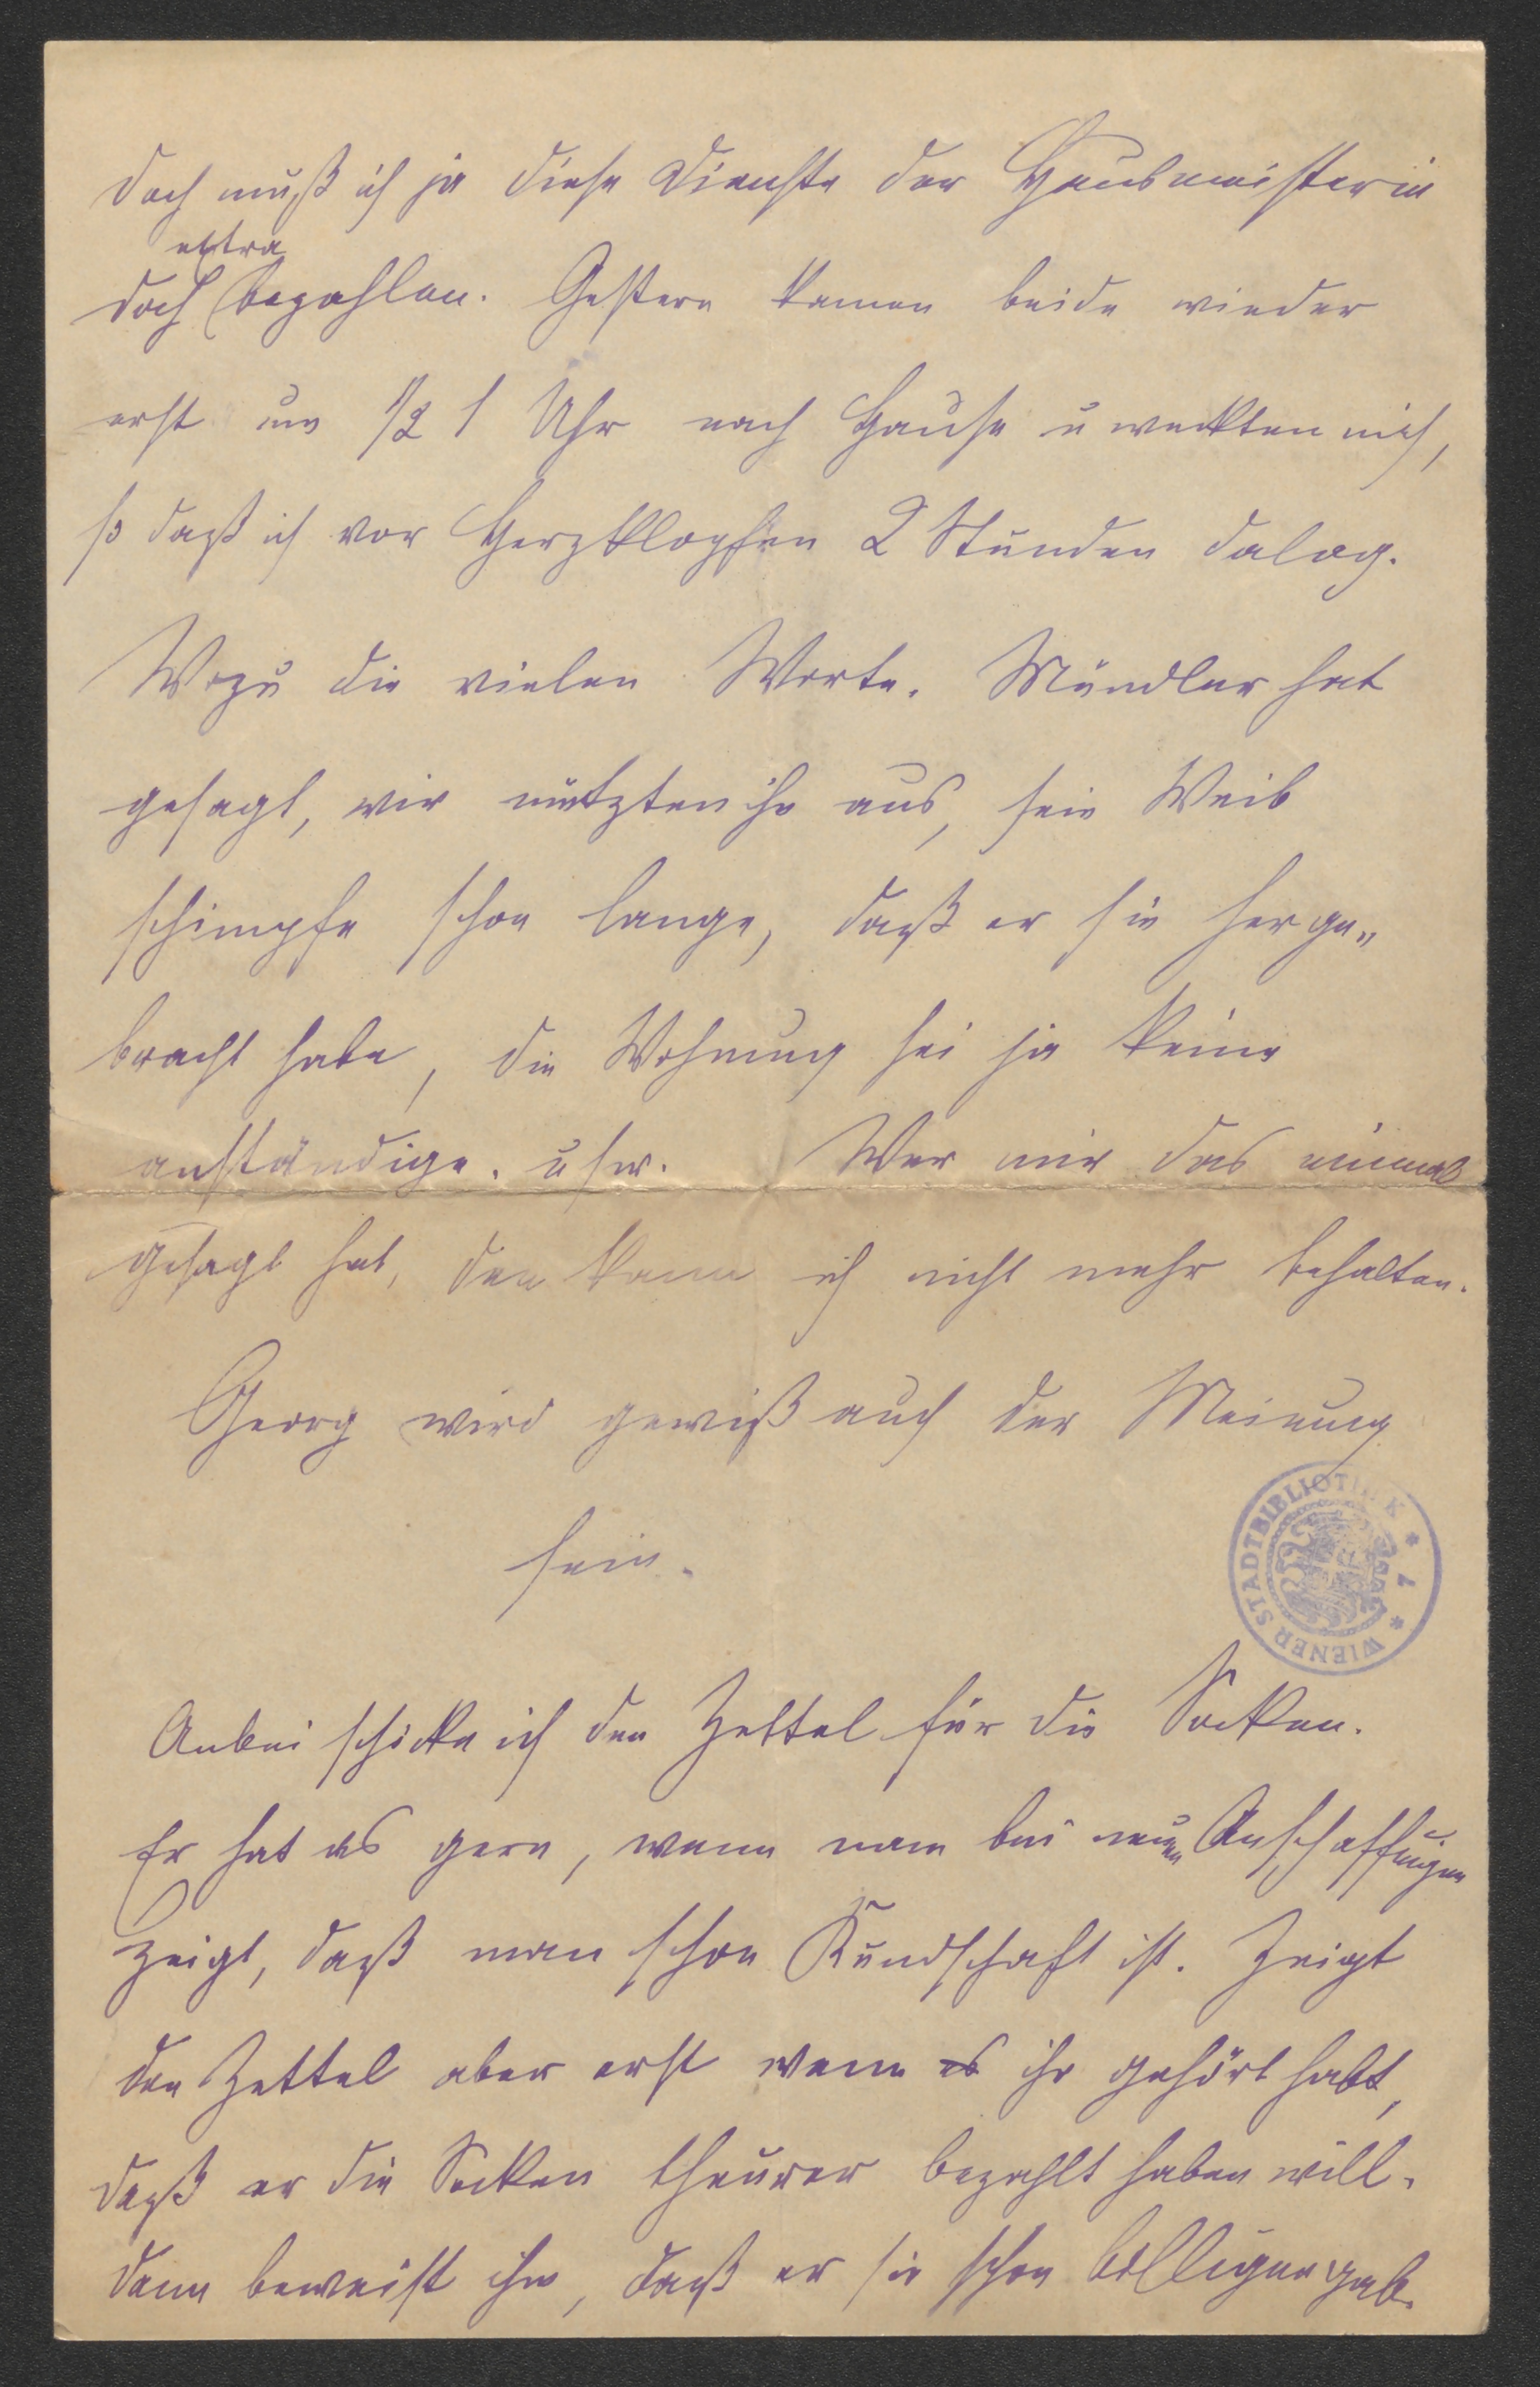 doch muß ich ja diese Dienste der Hausmeisterin
extra
doch bezahlen. Gestern kamen beide wieder
erst um 1/2 1 Uhr nach Hause u weckten mich,
so daß ich vor Herzklopfen 2 Stunden dalag.
Wozu die vielen Worte. Mündler hat
gesagt, wir nützten ihn aus, sein Weib
schimpfe schon lange, daß er sie herge„
bracht habe, die Wohnung sei ja keine
anständige. usw. Wer mir das einmal
gesagt hat, den kann ich nicht mehr behalten.
Georg wird gewiß auch der Meinung
sein.
WIENER STADTBIBLIOTHEK * 7 *
Anbei schicke ich den Zettel für die Socken.
Er hat es gern, wenn man bei neuen Anschaffungen
zeigt, daß man schon Kundschaft ist. Zeigt
den Zettel aber erst wenn es ihr gehört habt,
daß er die Socken theurer bezahlt haben will.
dann beweist ihm, daß er sie schon billiger gab.